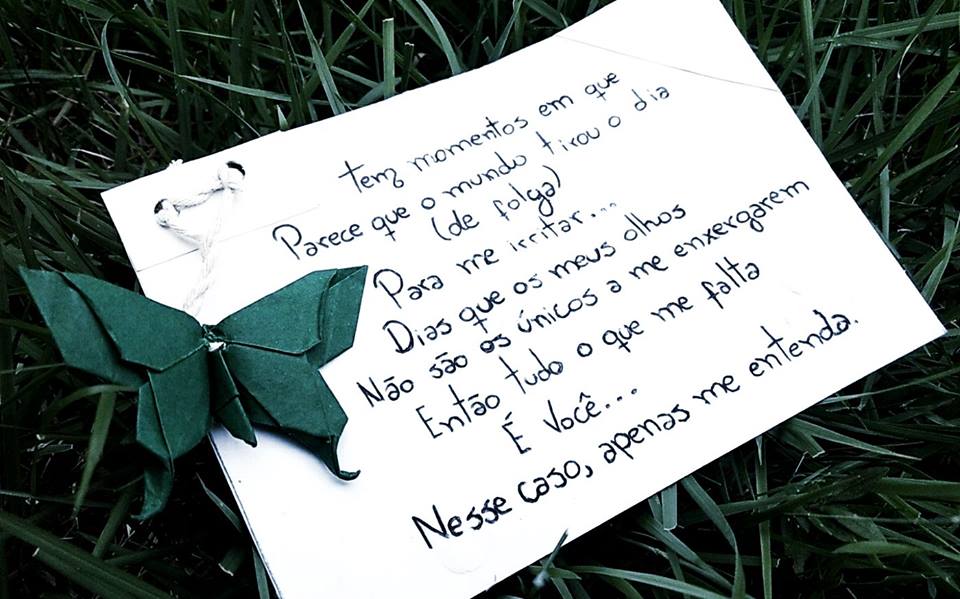 tem momentos em que
Parece que o mundo tirou o dia
(de folga)
Para me irritar...
Dias que os meus olhos
Não são os únicos a me enxergarem
Então tudo o que me falta
É Você...
Nesse caso, apenas me entenda.